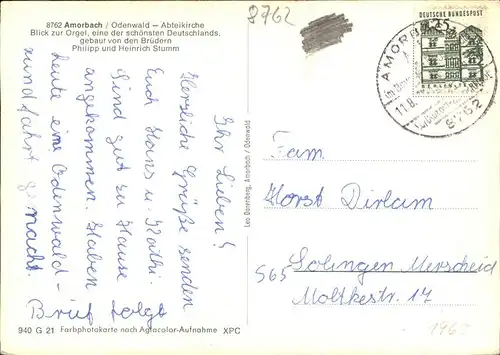 8762 Amorbach / Odenwald — Abteikirche
Blick zur Orgel, eine der schönsten Deutschlands,
gebaut von den Brüdern
Philipp und Heinrich Stumm
8762
DEUTSCHE BUNDESPOST
AMORBACH
11.8.
8762
Ihr Lieben!
Herzliche Grüße senden
Euch Hans u. Käthi.
Sind gut zu Hause
angekommen. Haben
heute eine Odenwald-
rundfahrt gemacht.
Brief folgt
Leo Dorenberg, Amorbach / Odenwald
Fam.
Horst Dirlam
565 Solingen Merscheid
Moltkestr. 17
1965
940 G 21 Farbphotokarte nach Agfacolor-Aufnahme XPC